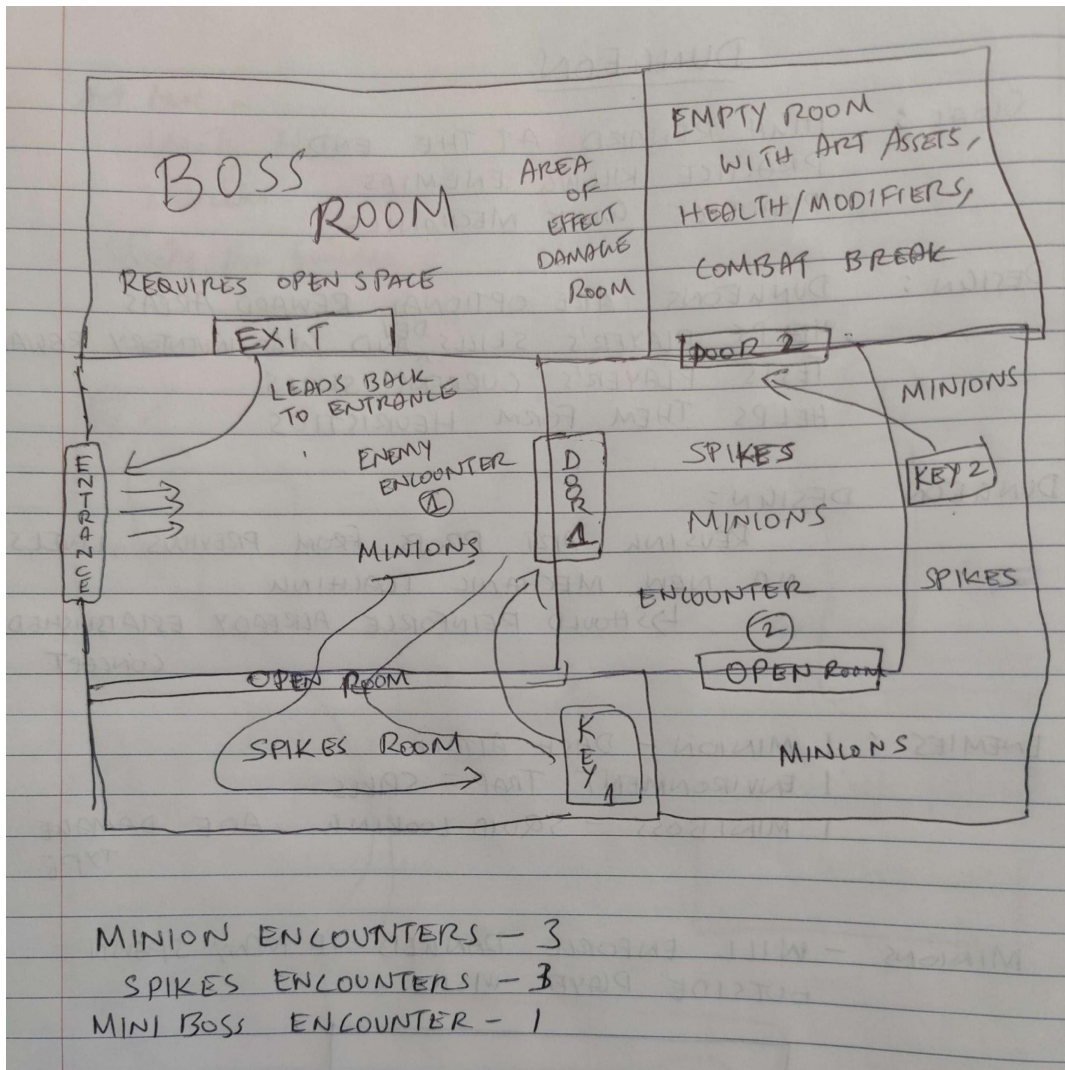 BOSS
ROOM
REQUIRES OPEN SPACE
AREA
OF
EFFECT
DAMAGE
ROOM
EMPTY ROOM
WITH ART ASSETS,
HEALTH/MODIFIERS,
COMBAT BREAK
EXIT
LEADS BACK
TO ENTRANCE
DOOR 2
ENTRANCE
ENEMY
ENCOUNTER
1
MINIONS
DOOR 1
SPIKES
MINIONS
ENCOUNTER
2
OPEN ROOM
MINIONS
KEY 2
SPIKES
MINIONS
OPEN ROOM
SPIKES ROOM
KEY 1
MINION ENCOUNTERS - 3
SPIKES ENCOUNTERS - 3
MINI BOSS ENCOUNTER - 1